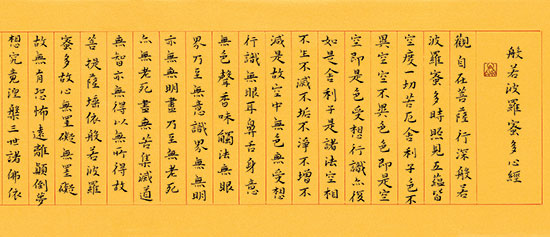 般若波羅蜜多心經
觀自在菩薩行深般若
波羅蜜多時照見五蘊皆
空度一切苦厄舍利子色不
異空空不異色色即是空
空即是色受想行識亦復
如是舍利子是諸法空相
不生不滅不垢不淨不增不
減是故空中無色無受想
行識無眼耳鼻舌身意
無色聲香味觸法無眼
界乃至無意識界無無明
亦無無明盡乃至無老死
亦無老死盡無苦集滅道
無智亦無得以無所得故
菩提薩埵依般若波羅
蜜多故心無罣礙無罣礙
故無有恐怖遠離顛倒夢
想究竟涅槃三世諸佛依